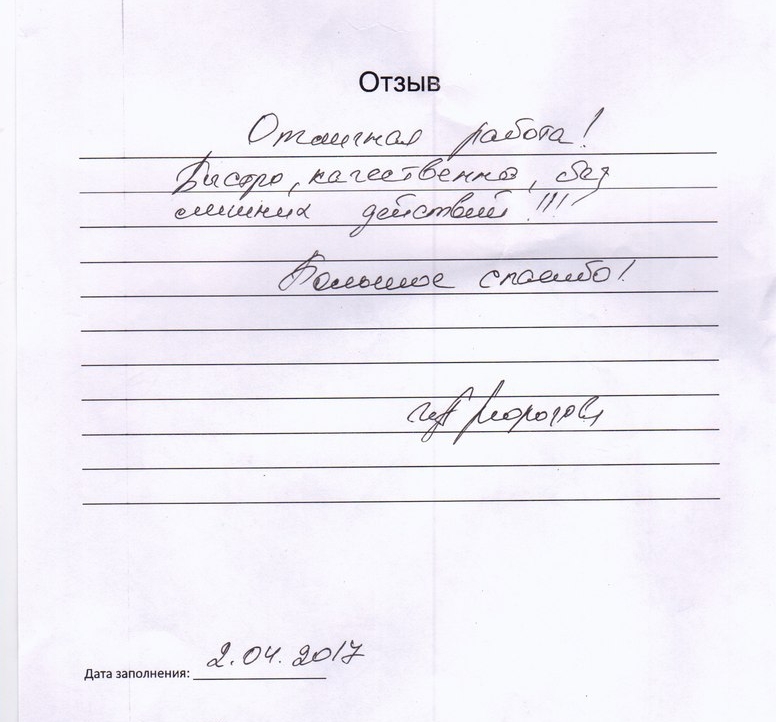 Отзыв
Отличная работа!
Быстро, качественно, без
лишних действий!!!!
Большое спасибо!
Дата заполнения: 2.04.2017